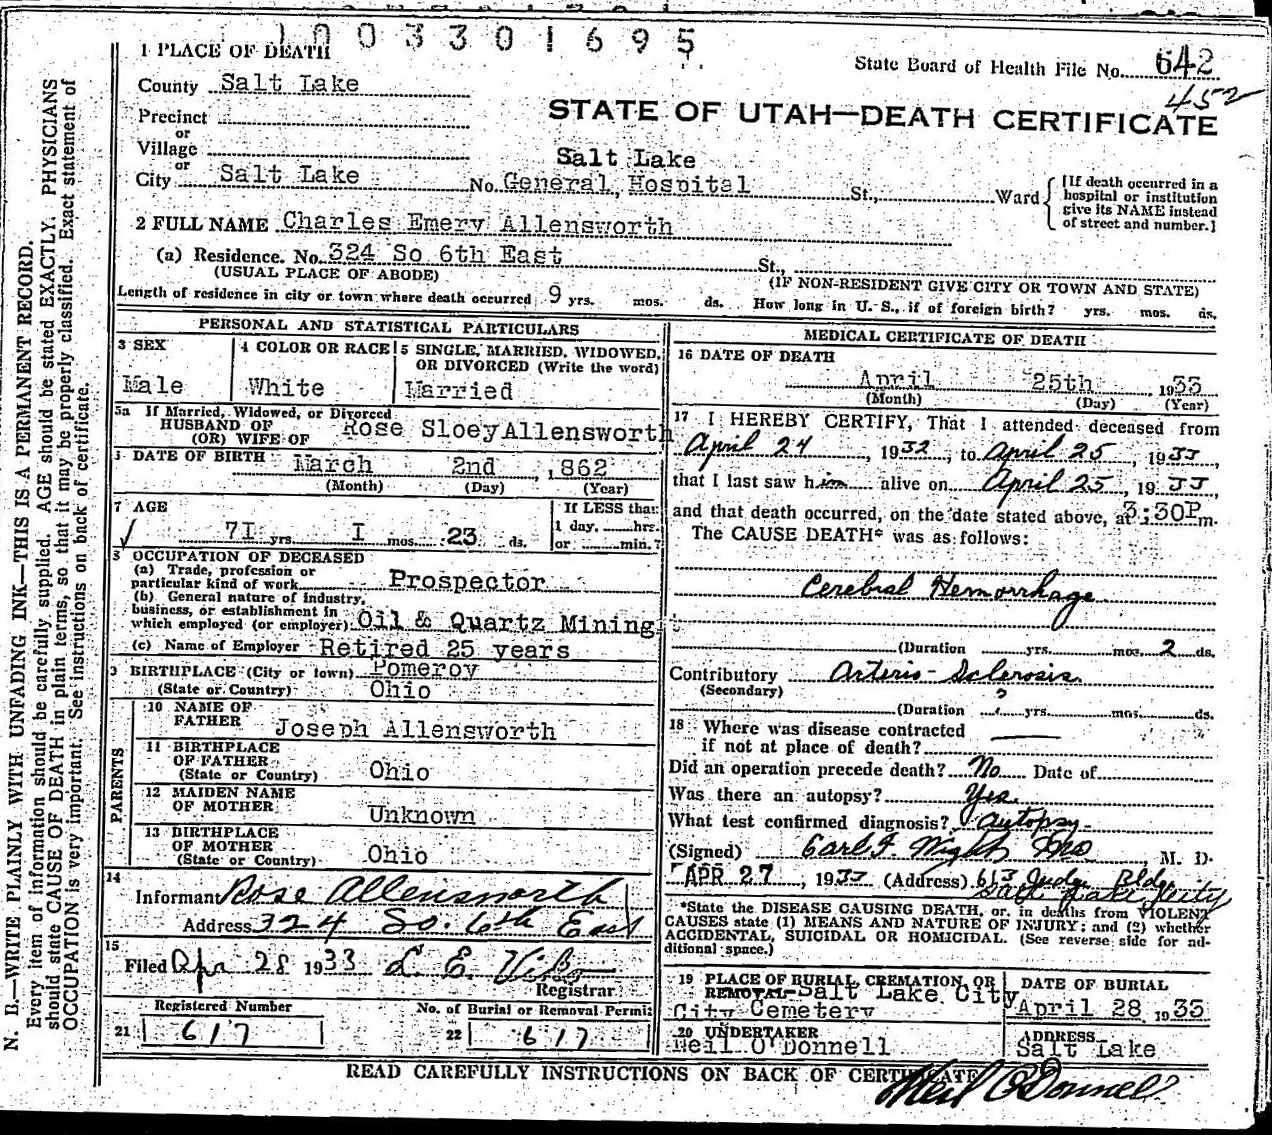 1003301695
1 PLACE OF DEATH
State Board of Health File No. 642
452
County Salt Lake
STATE OF UTAH—DEATH CERTIFICATE
Precinct
or
Village
or
City Salt Lake No. Salt Lake General, Hospital St., Ward
[If death occurred in a
hospital or institution
give its NAME instead
of street and number.]
2 FULL NAME Charles Emery Allensworth
(a) Residence. No. 324 So 6th East St.,
(USUAL PLACE OF ABODE) (IF NON-RESIDENT GIVE CITY OR TOWN AND STATE)
Length of residence in city or town where death occurred 9 yrs. mos. ds. How long in U. S., if of foreign birth? yrs. mos. ds.
PERSONAL AND STATISTICAL PARTICULARS
3 SEX
Male
4 COLOR OR RACE
White
5 SINGLE, MARRIED, WIDOWED,
OR DIVORCED (Write the word)
Married
5a If Married, Widowed, or Divorced
HUSBAND OF
(OR) WIFE OF Rose Sloey Allensworth
DATE OF BIRTH March 2nd ,1862
(Month) (Day) (Year)
7 AGE
71 yrs. I mos. 23 ds.
If LESS than
1 day, hrs.
or min.?
8 OCCUPATION OF DECEASED
(a) Trade, profession or
particular kind of work Prospector
(b) General nature of industry,
business, or establishment in
which employed (or employer) Oil & Quartz Mining
(c) Name of Employer Retired 25 years
9 BIRTHPLACE (City or town) Pomeroy
(State or Country) Ohio
PARENTS
10 NAME OF
FATHER Joseph Allensworth
11 BIRTHPLACE
OF FATHER
(State or Country) Ohio
12 MAIDEN NAME
OF MOTHER Unknown
13 BIRTHPLACE
OF MOTHER
(State or Country) Ohio
14
Informant Rose Allensworth
Address 324 So. 6th East
15
Filed Apr 28 1933 L. E.
Registrar
Registered Number
21 617
No. of Burial or Removal Permit
22 617
MEDICAL CERTIFICATE OF DEATH
16 DATE OF DEATH
April 25th 1933
(Month) (Day) (Year)
17 I HEREBY CERTIFY, That I attended deceased from
April 24, 1932, to April 25, 1933,
that I last saw him alive on April 25, 1933
and that death occurred, on the date stated above, at 3:30P m.
The CAUSE DEATH* was as follows:
Cerebral Hemorrhage
(Duration yrs. mos. 2 ds.
Contributory Arterio-Sclerosis
(Secondary)
(Duration ? yrs. mos. ds.
18 Where was disease contracted
if not at place of death?
Did an operation precede death? No Date of
Was there an autopsy? Yes
What test confirmed diagnosis? Autopsy
(Signed) Earl F. Wight, M. D.
APR 27, 1933 (Address) 613 Judge Bldg.
Salt Lake City
*State the DISEASE CAUSING DEATH, or, in deaths from VIOLENT
CAUSES state (1) MEANS AND NATURE OF INJURY; and (2) whether
ACCIDENTAL, SUICIDAL OR HOMICIDAL. (See reverse side for ad-
ditional space.)
19 PLACE OF BURIAL, CREMATION, OR
REMOVAL Salt Lake City
City Cemetery
DATE OF BURIAL
April 28 1933
20 UNDERTAKER
Neil O'Donnell
ADDRESS
Salt Lake
READ CAREFULLY INSTRUCTIONS ON BACK OF CERTIFICATE
Neil O'Donnell
N. B.—WRITE PLAINLY WITH UNFADING INK—THIS IS A PERMANENT RECORD.
Every item of information should be carefully supplied. AGE should be stated EXACTLY. PHYSICIANS
should state CAUSE OF DEATH in plain terms, so that it may be properly classified. Exact statement of
OCCUPATION is very important. See instructions on back of certificate.